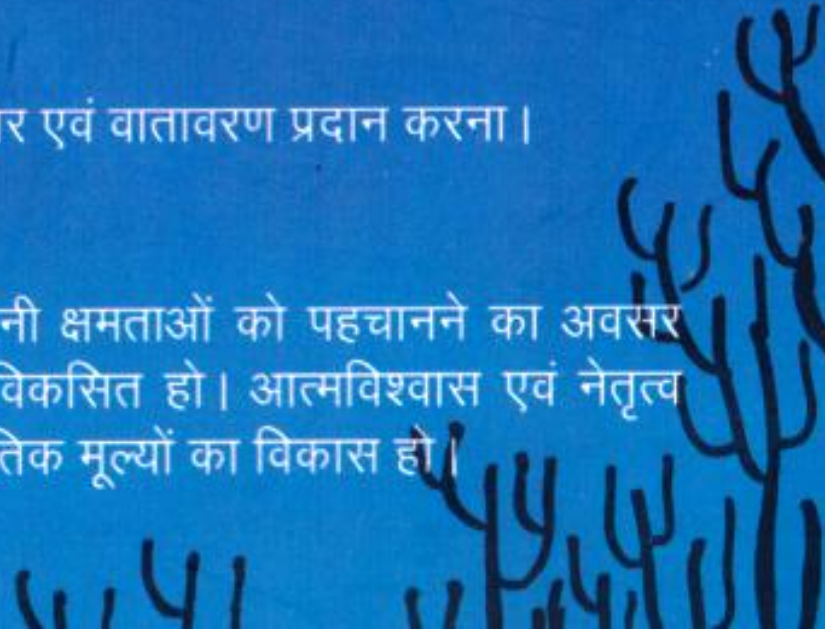 एवं वातावरण प्रदान करना।
क्षमताओं को पहचानने का अवसर
विकसित हो। आत्मविश्वास एवं नेतृत्व
मूल्यों का विकास हो।